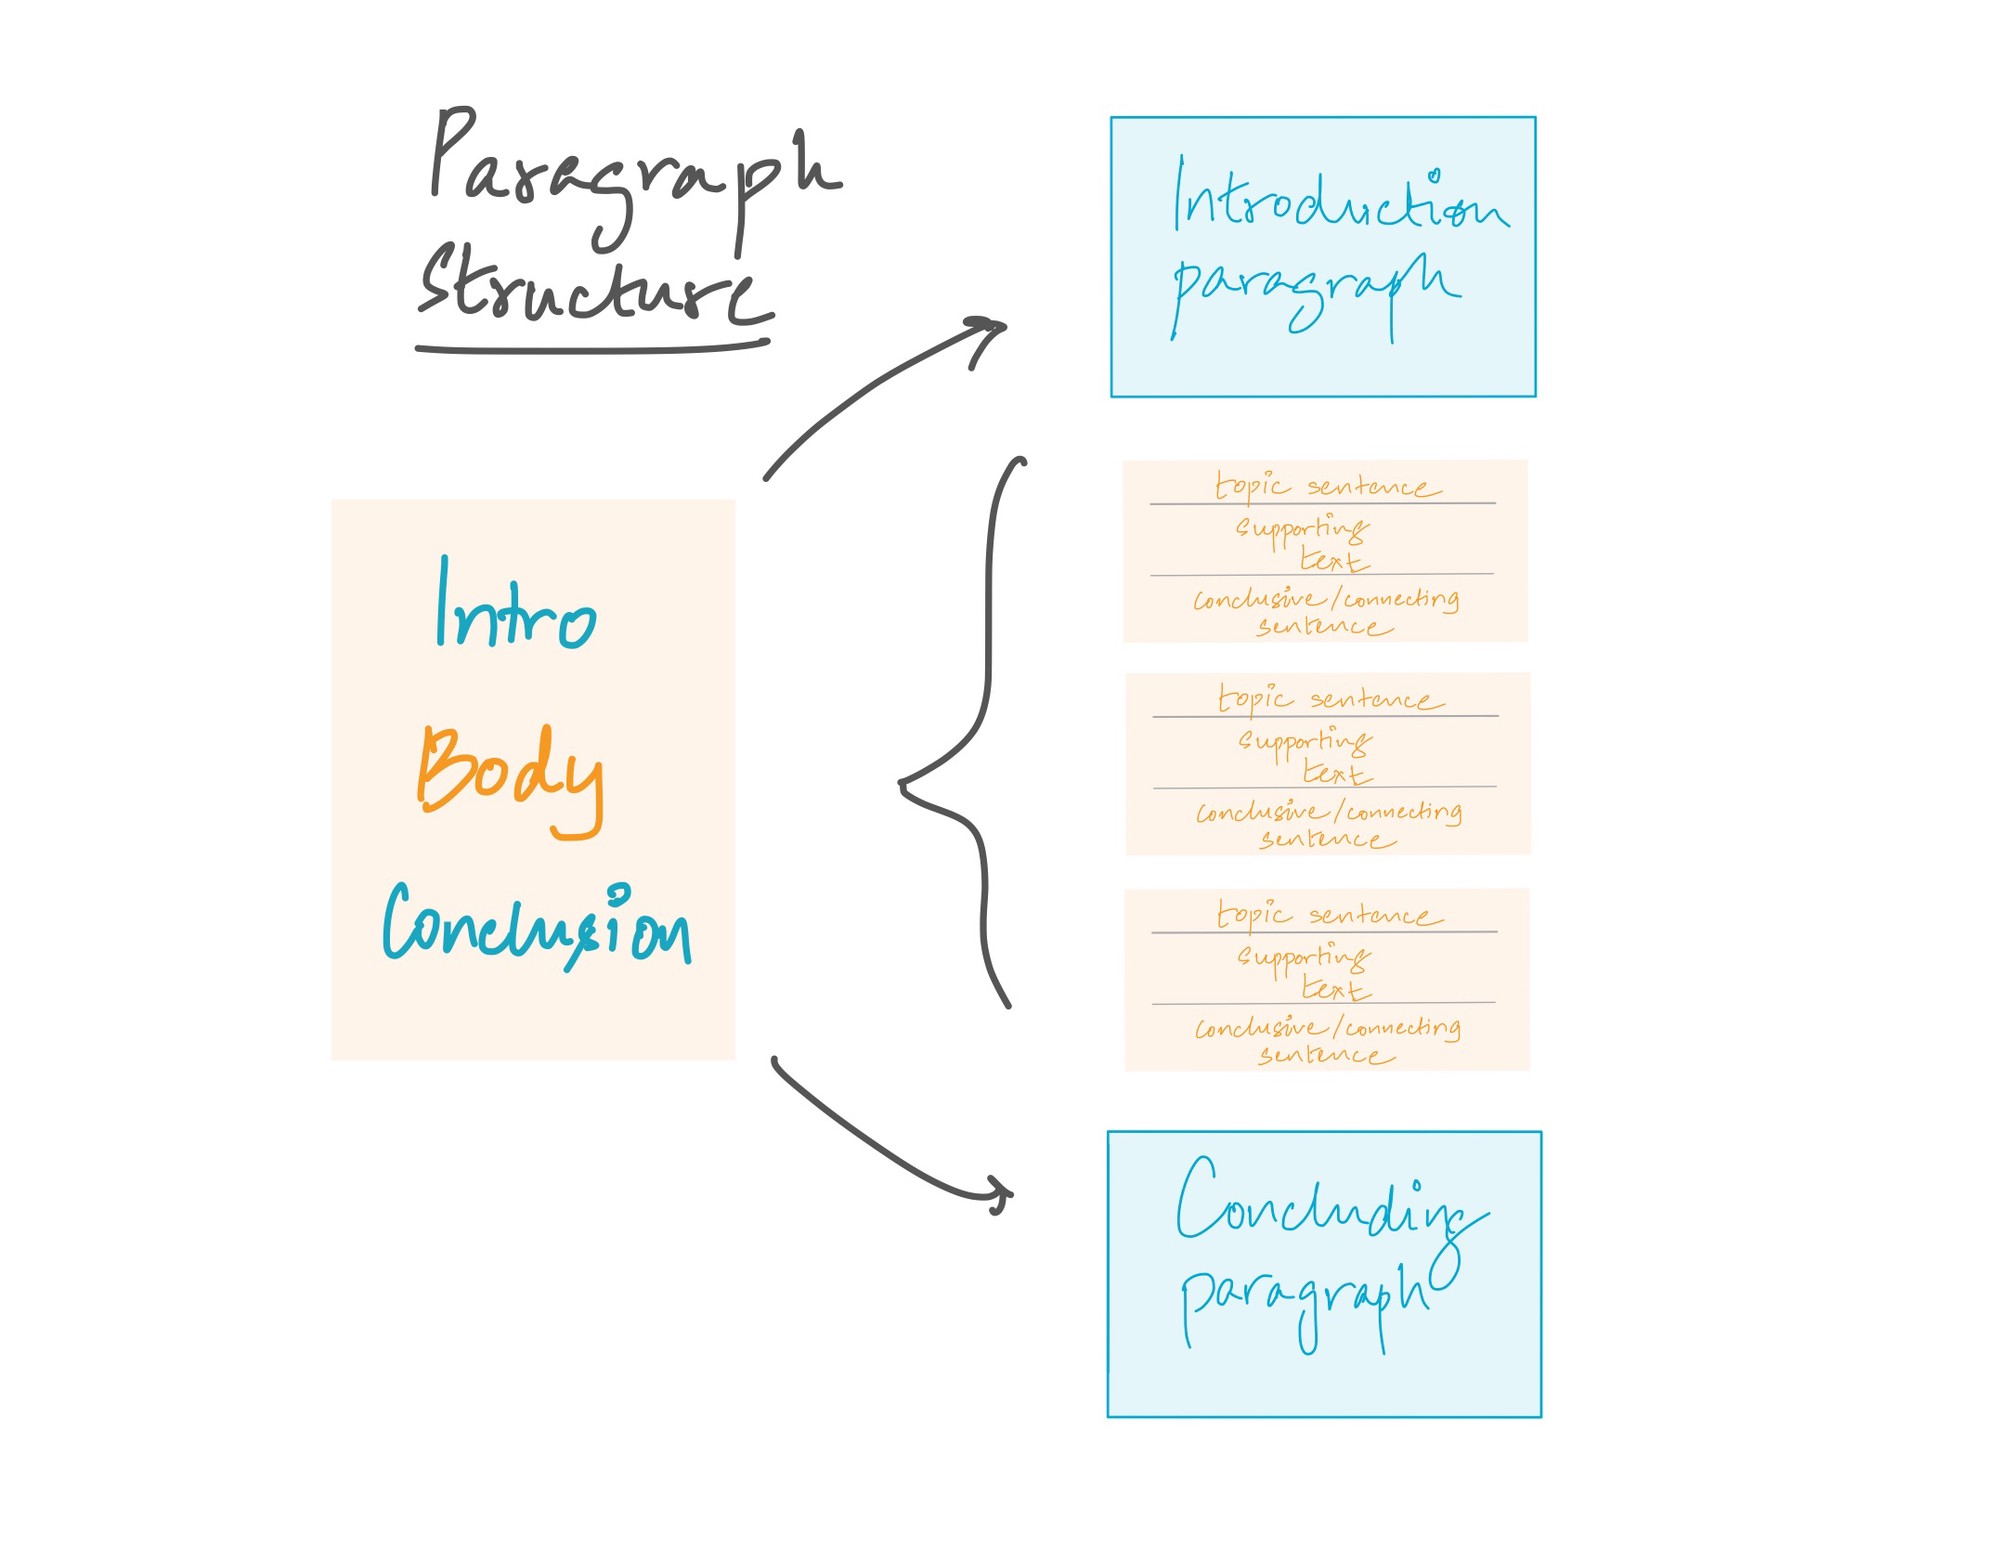 Paragraph
Structure
Intro
Body
Conclusion
Introduction
paragraph
topic sentence
supporting
text
conclusive/connecting
sentence
topic sentence
supporting
text
conclusive/connecting
sentence
topic sentence
supporting
text
conclusive/connecting
sentence
Concluding
paragraph